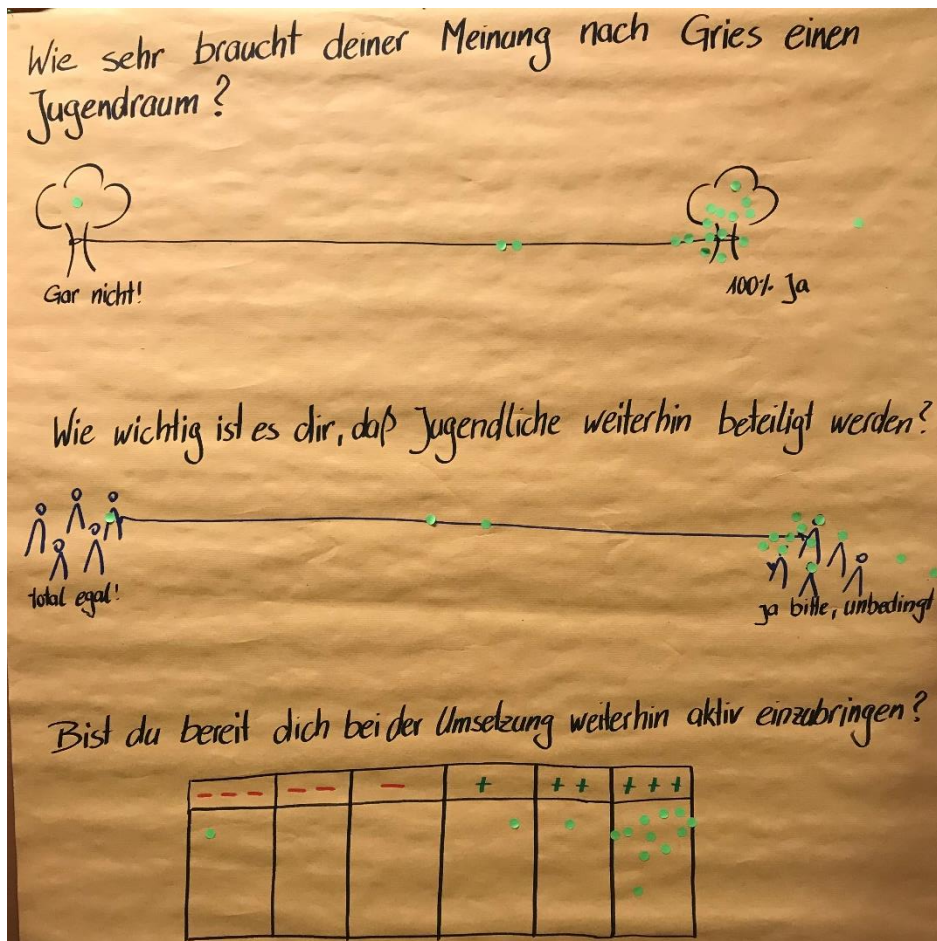 Wie sehr braucht deiner Meinung nach Gries einen
Jugendraum?
Gar nicht!
100% Ja
Wie wichtig ist es dir, daß Jugendliche weiterhin beteiligt werden?
total egal!
Ja bitte, unbedingt
Bist du bereit dich bei der Umsetzung weiterhin aktiv einzubringen?
--- -- - + ++ +++